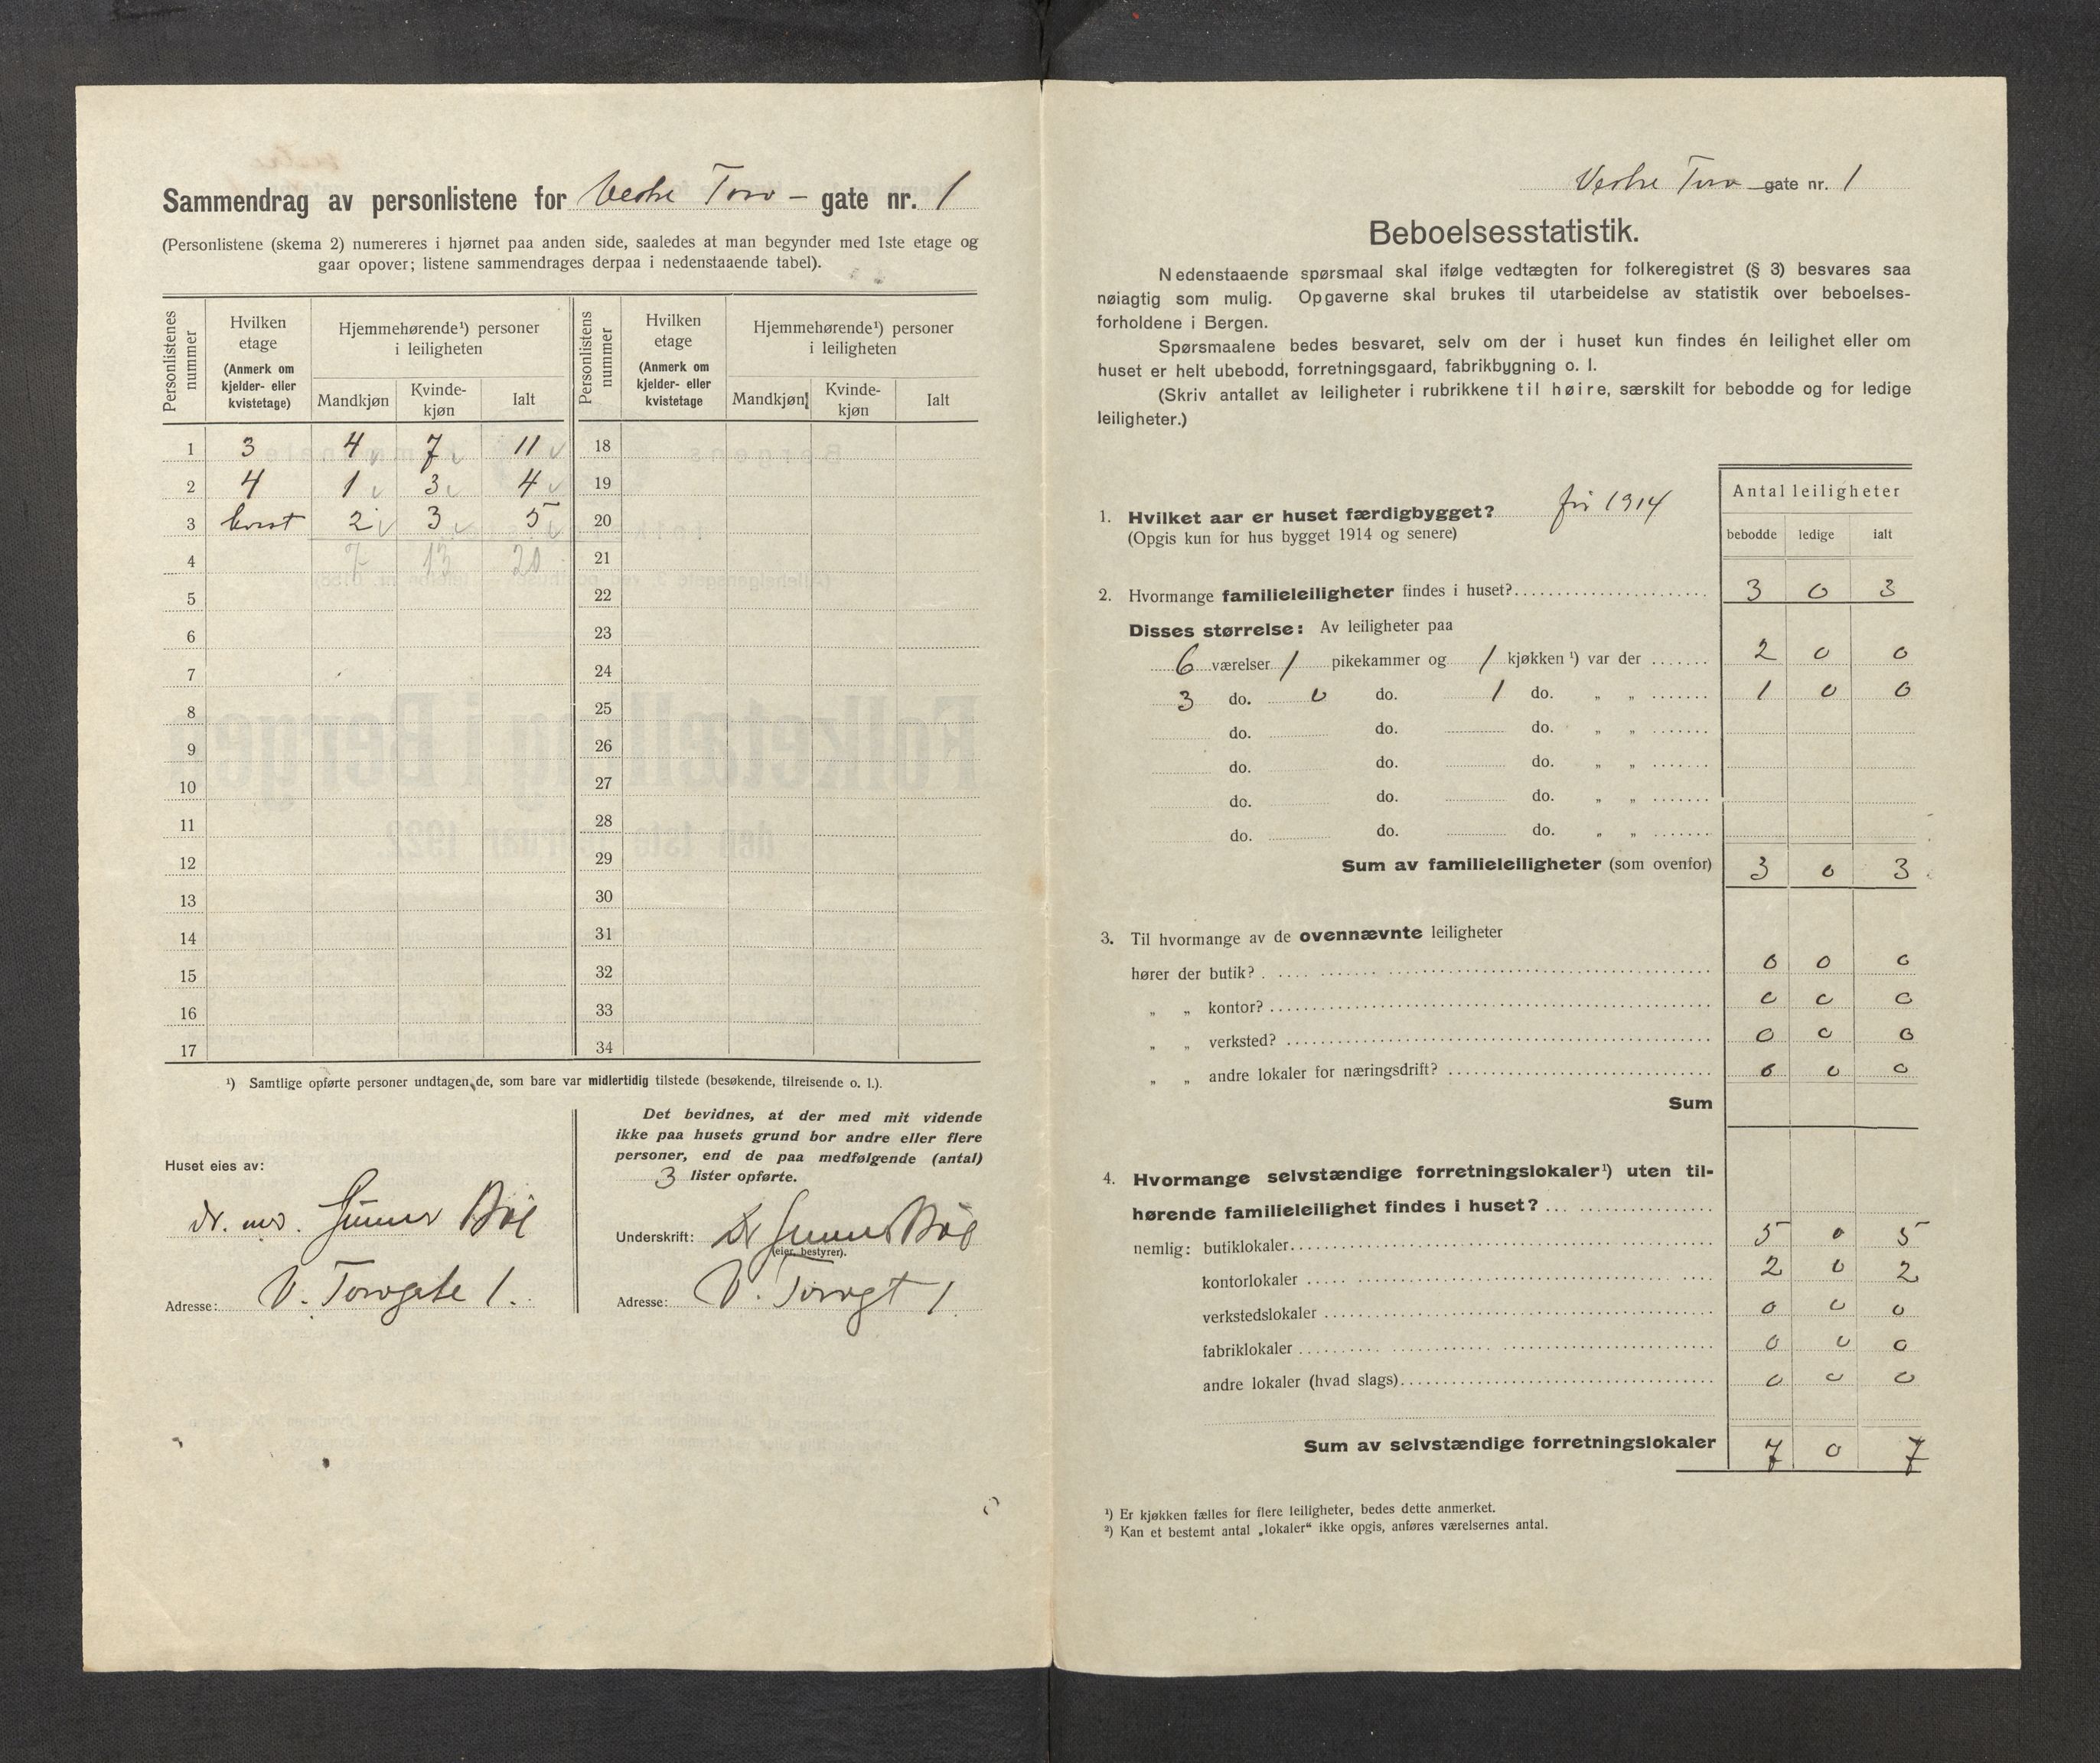 Sammendrag av personlistene for Vestre Torv – gate nr. 1
(Personlistene (skema 2) numereres i hjørnet paa anden side, saaledes at man begynder med 1ste etage og
gaar opover; listene sammendrages derpaa i nedenstaaende tabel).
Personlistenes nummer | Hvilken etage (Anmerk om kjelder- eller kvistetage) | Hjemmehørende¹) personer i leiligheten | Personlistens nummer | Hvilken etage (Anmerk om kjelder- eller kvistetage | Hjemmehørende¹) personer i leiligheten
Mandkjøn | Kvinde-kjøn | Ialt | Mandkjøn | Kvinde-kjøn | Ialt
1 3 4 7 11 18
2 4 1 3 4 19
3 kvist 2 3 5 20
4 7 13 20 21
5 22
6 23
7 24
8 25
9 26
10 27
11 28
12 29
13 30
14 31
15 32
16 33
17 34
¹) Samtlige opførte personer undtagen de, som bare var midlertidig tilstede (besøkende, tilreisende o. l.).
Huset eies av:
dr. med. Gunnar Bøe
Adresse: V. Torvgate 1.
Det bevidnes, at der med mit vidende
ikke paa husets grund bor andre eller flere
personer, end de paa medfølgende (antal)
3 lister opførte.
Underskrift: Dr Gunnar Bøe
(eier, bestyrer).
Adresse: V. Torvgt 1
Vestre Torv – gate nr. 1
Beboelsesstatistik.
Nedenstaaende spørsmaal skal ifølge vedtægten for folkeregistret (§ 3) besvares saa
nøiagtig som mulig. Opgaverne skal brukes til utarbeidelse av statistik over beboelses-
forholdene i Bergen.
Spørsmaalene bedes besvaret, selv om der i huset kun findes én leilighet eller om
huset er helt ubebodd, forretningsgaard, fabrikbygning o. l.
(Skriv antallet av leiligheter i rubrikkene til høire, særskilt for bebodde og for ledige
leiligheter.)
Antal leiligheter
bebodde ledige ialt
1. Hvilket aar er huset færdigbygget? før 1914
(Opgis kun for hus bygget 1914 og senere)
2. Hvormange familieleiligheter findes i huset? 3 0 3
Disses størrelse: Av leiligheter paa
6 værelser 1 pikekammer og 1 kjøkken ¹) var der 2 0 0
3 do. 0 do. 1 do. „ „ 1 0 0
do. do. do. „ „
do. do. do. „ „
do. do. do. „ „
do. do. do. „ „
Sum av familieleiligheter (som ovenfor) 3 0 3
3. Til hvormange av de ovennævnte leiligheter
hører der butik? 0 0 0
„ „ kontor? 0 0 0
„ „ verksted? 0 0 0
„ „ andre lokaler for næringsdrift? 0 0 0
Sum
4. Hvormange selvstændige forretningslokaler¹) uten til-
hørende familieleilighet findes i huset?
nemlig: butiklokaler 5 0 5
kontorlokaler 2 0 2
verkstedslokaler 0 0 0
fabriklokaler 0 0 0
andre lokaler (hvad slags) 0 0 0
Sum av selvstændige forretningslokaler 7 0 7
¹) Er kjøkken fælles for flere leiligheter, bedes dette anmerket.
²) Kan et bestemt antal „lokaler“ ikke opgis, anføres værelsernes antal.